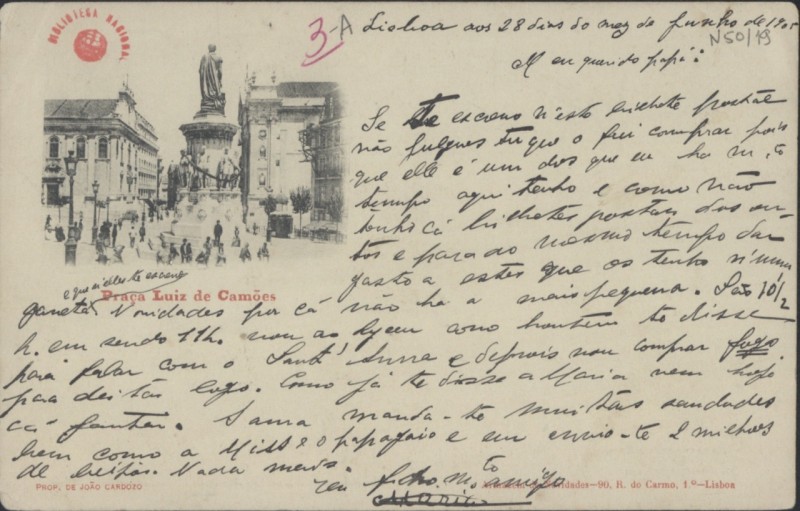 BIBLIOTECA NACIONAL
3-A
Lisboa aos 28 dias do mez de Junho de 1905
N50/19
Meu querido papá:
Se te escrevo n'este bilhete postal
não julgues tu que o fui comprar pois
que elle é um dos que eu ha m.to
tempo aqui tenho e como não
tenho cá bilhetes postaes dos ou-
tos e para ao mesmo tempo dar
gasto a estes que os tenho n'uma
e que n'elles te escrevo
Praça Luiz de Camões
gaveta. Novidades por cá não ha a mais pequena. São 10 1/2
h. em sendo 11h. vou ao Lyceu como hontem te disse
para falar com o Sant'Anna e depois vou comprar fogo
para deitar logo. Como já te disse a Maria vem hoje
cá jantar. A ama manda-te muitas saudades
bem como a Miss e o papagaio e eu envio-te 2 milhões
de beijos. Nada mais.
teu filho m.to amigo
Mario
PROF. DE JOÃO CARDOZO
Novidades—90, R. do Carmo, 1.º—Lisboa